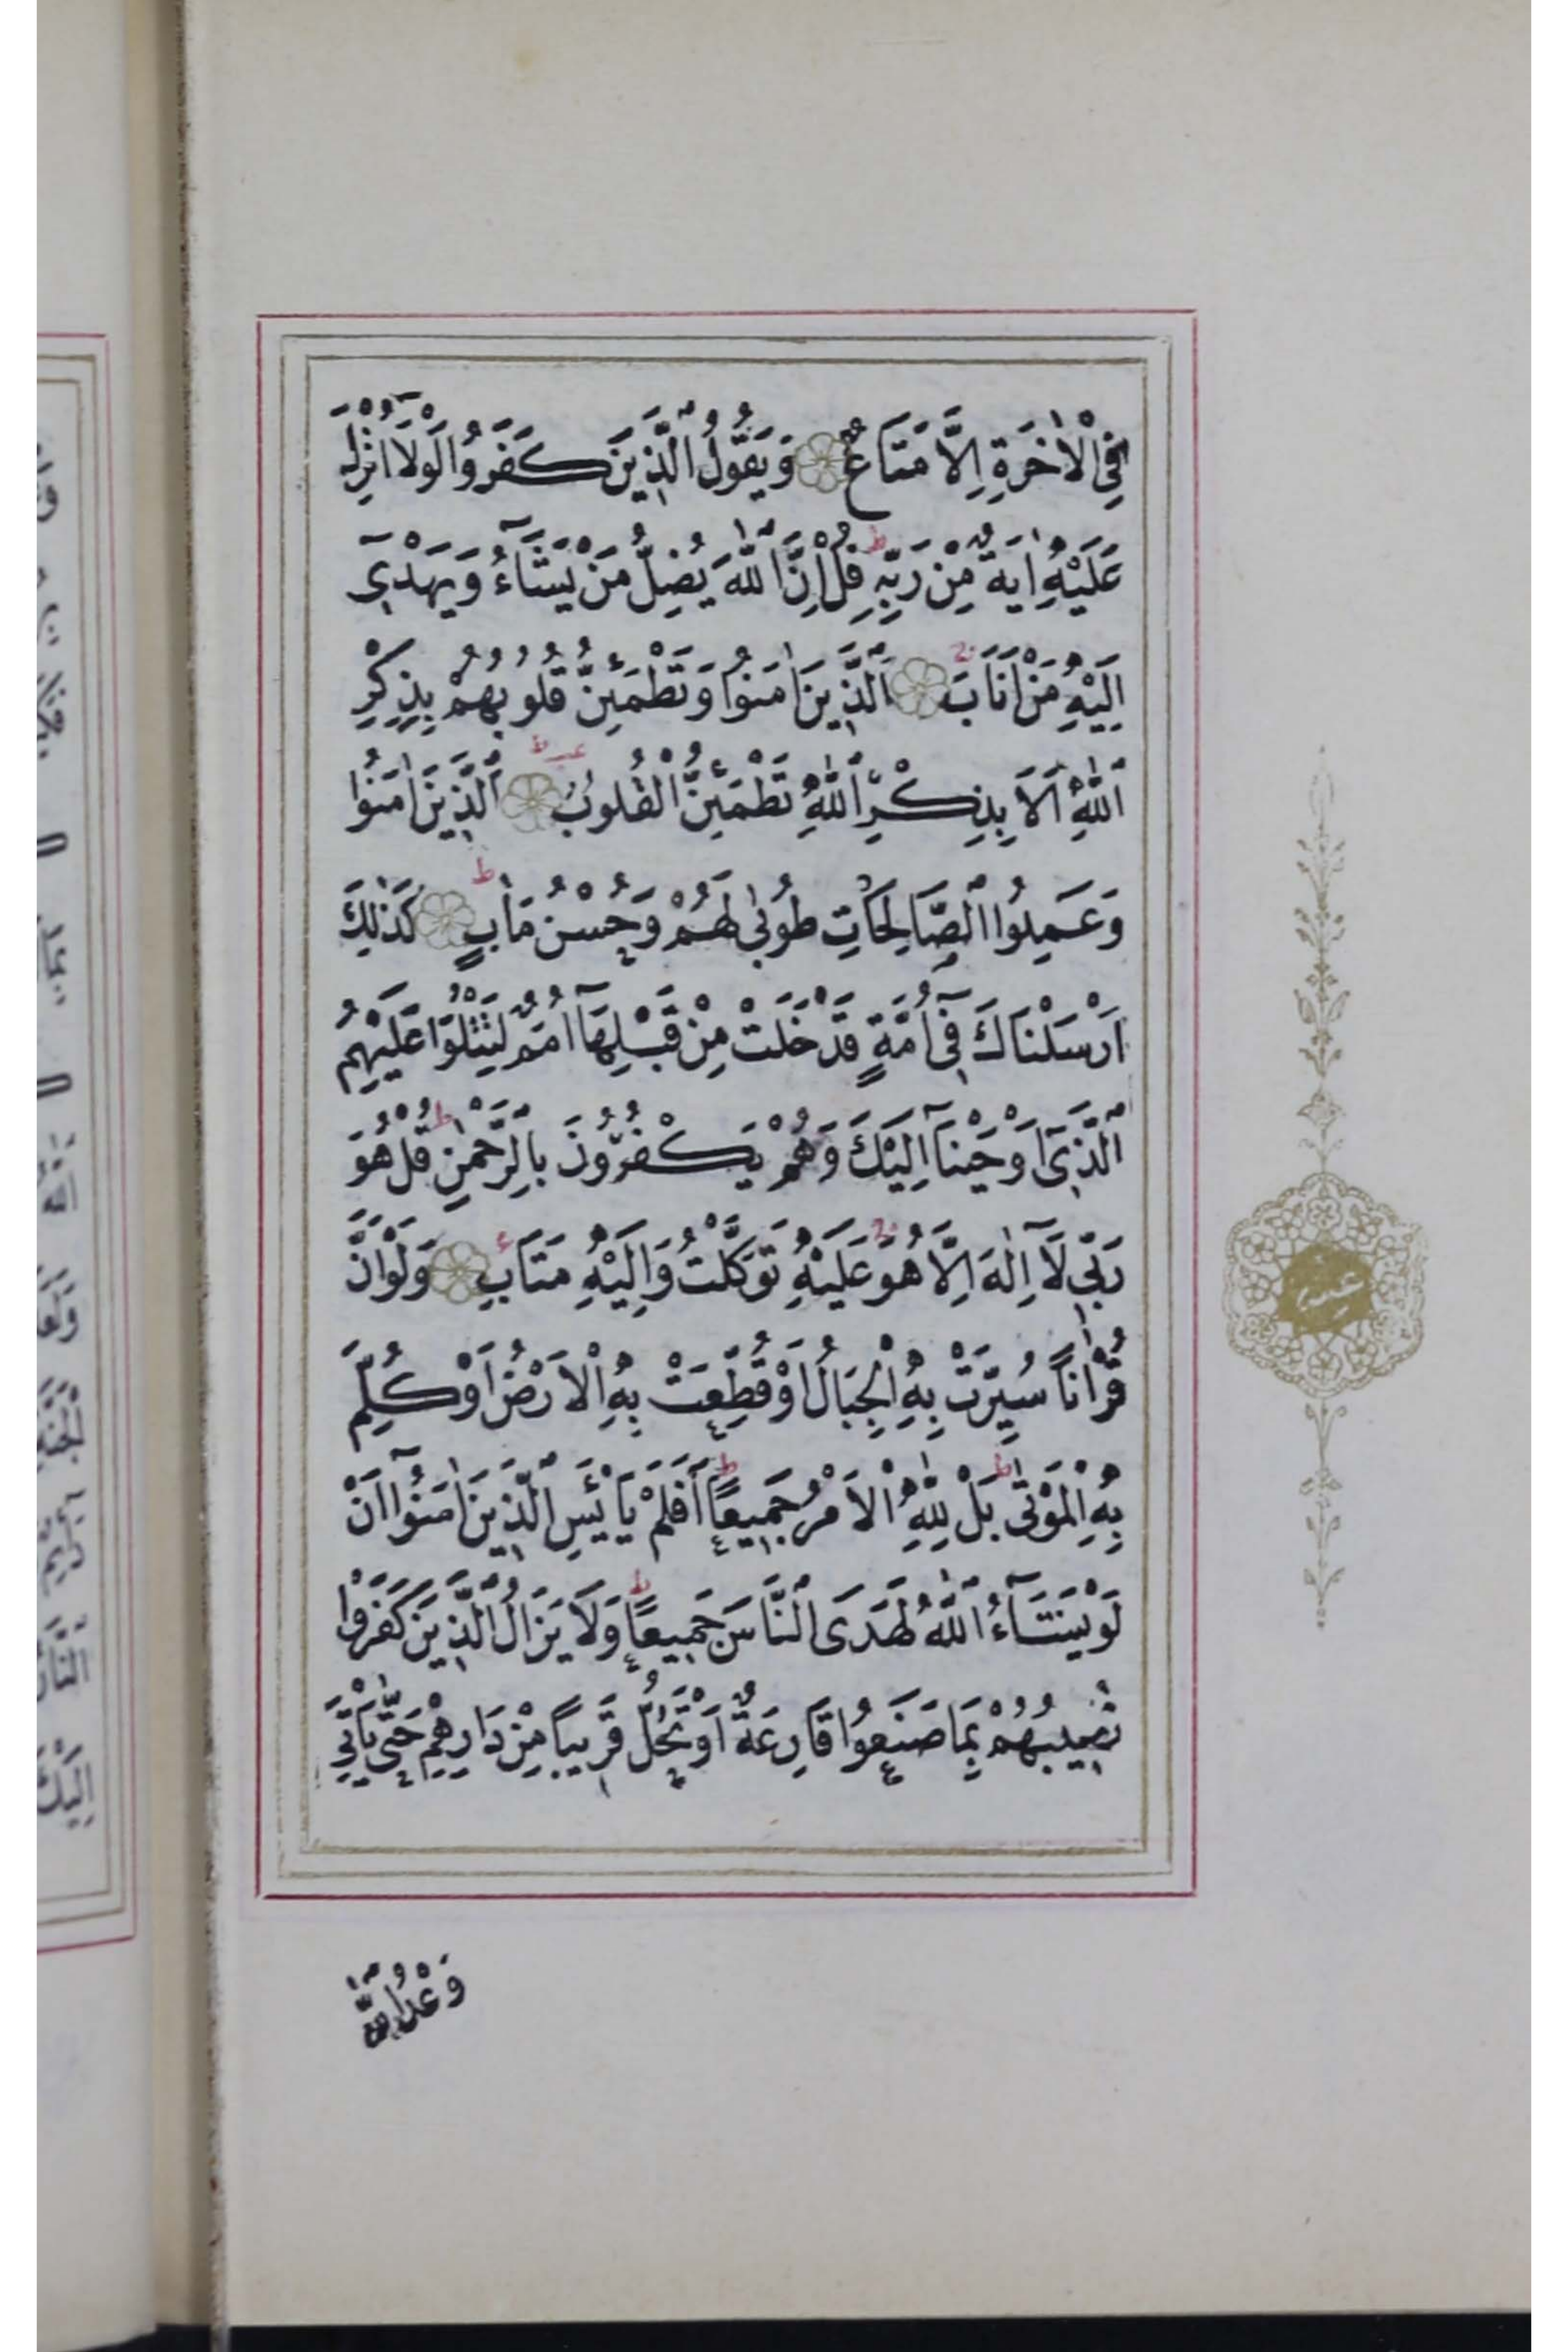 فِي الْاٰخِرَةِ اِلَّا مَتَاعٌ وَيَقُولُ الَّذِينَ كَفَرُوا لَوْلَٓا اُنْزِلَ
عَلَيْهِ اٰيَةٌ مِنْ رَبِّهِ ط قُلْ اِنَّ اللّٰهَ يُضِلُّ مَنْ يَشَٓاءُ وَيَهْدِٓي
اِلَيْهِ مَنْ اَنَابَ اَلَّذِينَ اٰمَنُوا وَتَطْمَئِنُّ قُلُوبُهُمْ بِذِكْرِ
اللّٰهِ اَلَا بِذِكْرِ اللّٰهِ تَطْمَئِنُّ الْقُلُوبُ ط اَلَّذِينَ اٰمَنُوا
وَعَمِلُوا الصَّالِحَاتِ طُوبٰى لَهُمْ وَحُسْنُ مَاٰبٍ ط كَذٰلِكَ
اَرْسَلْنَاكَ فِٓي اُمَّةٍ قَدْ خَلَتْ مِنْ قَبْلِهَٓا اُمَمٌ لِتَتْلُوَا عَلَيْهِمُ
الَّذِٓي اَوْحَيْنَٓا اِلَيْكَ وَهُمْ يَكْفُرُونَ بِالرَّحْمٰنِ ط قُلْ هُوَ
رَبِّي لَٓا اِلٰهَ اِلَّا هُوَ عَلَيْهِ تَوَكَّلْتُ وَاِلَيْهِ مَتَابِ وَلَوْ اَنَّ
قُرْاٰنًا سُيِّرَتْ بِهِ الْجِبَالُ اَوْ قُطِّعَتْ بِهِ الْاَرْضُ اَوْ كُلِّمَ
بِهِ الْمَوْتٰى ط بَلْ لِلّٰهِ الْاَمْرُ جَمِيعًا ط اَفَلَمْ يَايْئَسِ الَّذِينَ اٰمَنُٓوا اَنْ
لَوْ يَشَٓاءُ اللّٰهُ لَهَدَى النَّاسَ جَمِيعًا ط وَلَا يَزَالُ الَّذِينَ كَفَرُوا
تُصِيبُهُمْ بِمَا صَنَعُوا قَارِعَةٌ اَوْ تَحُلُّ قَرِيبًا مِنْ دَارِهِمْ حَتّٰى يَاْتِيَ
وَعْدُ اللّٰهِ